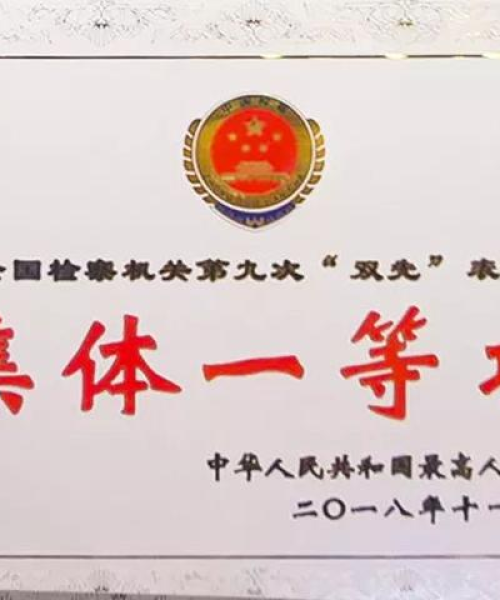 全国检察机关第九次“双先”表
集体一等功
中华人民共和国最高人
二〇一八年十一